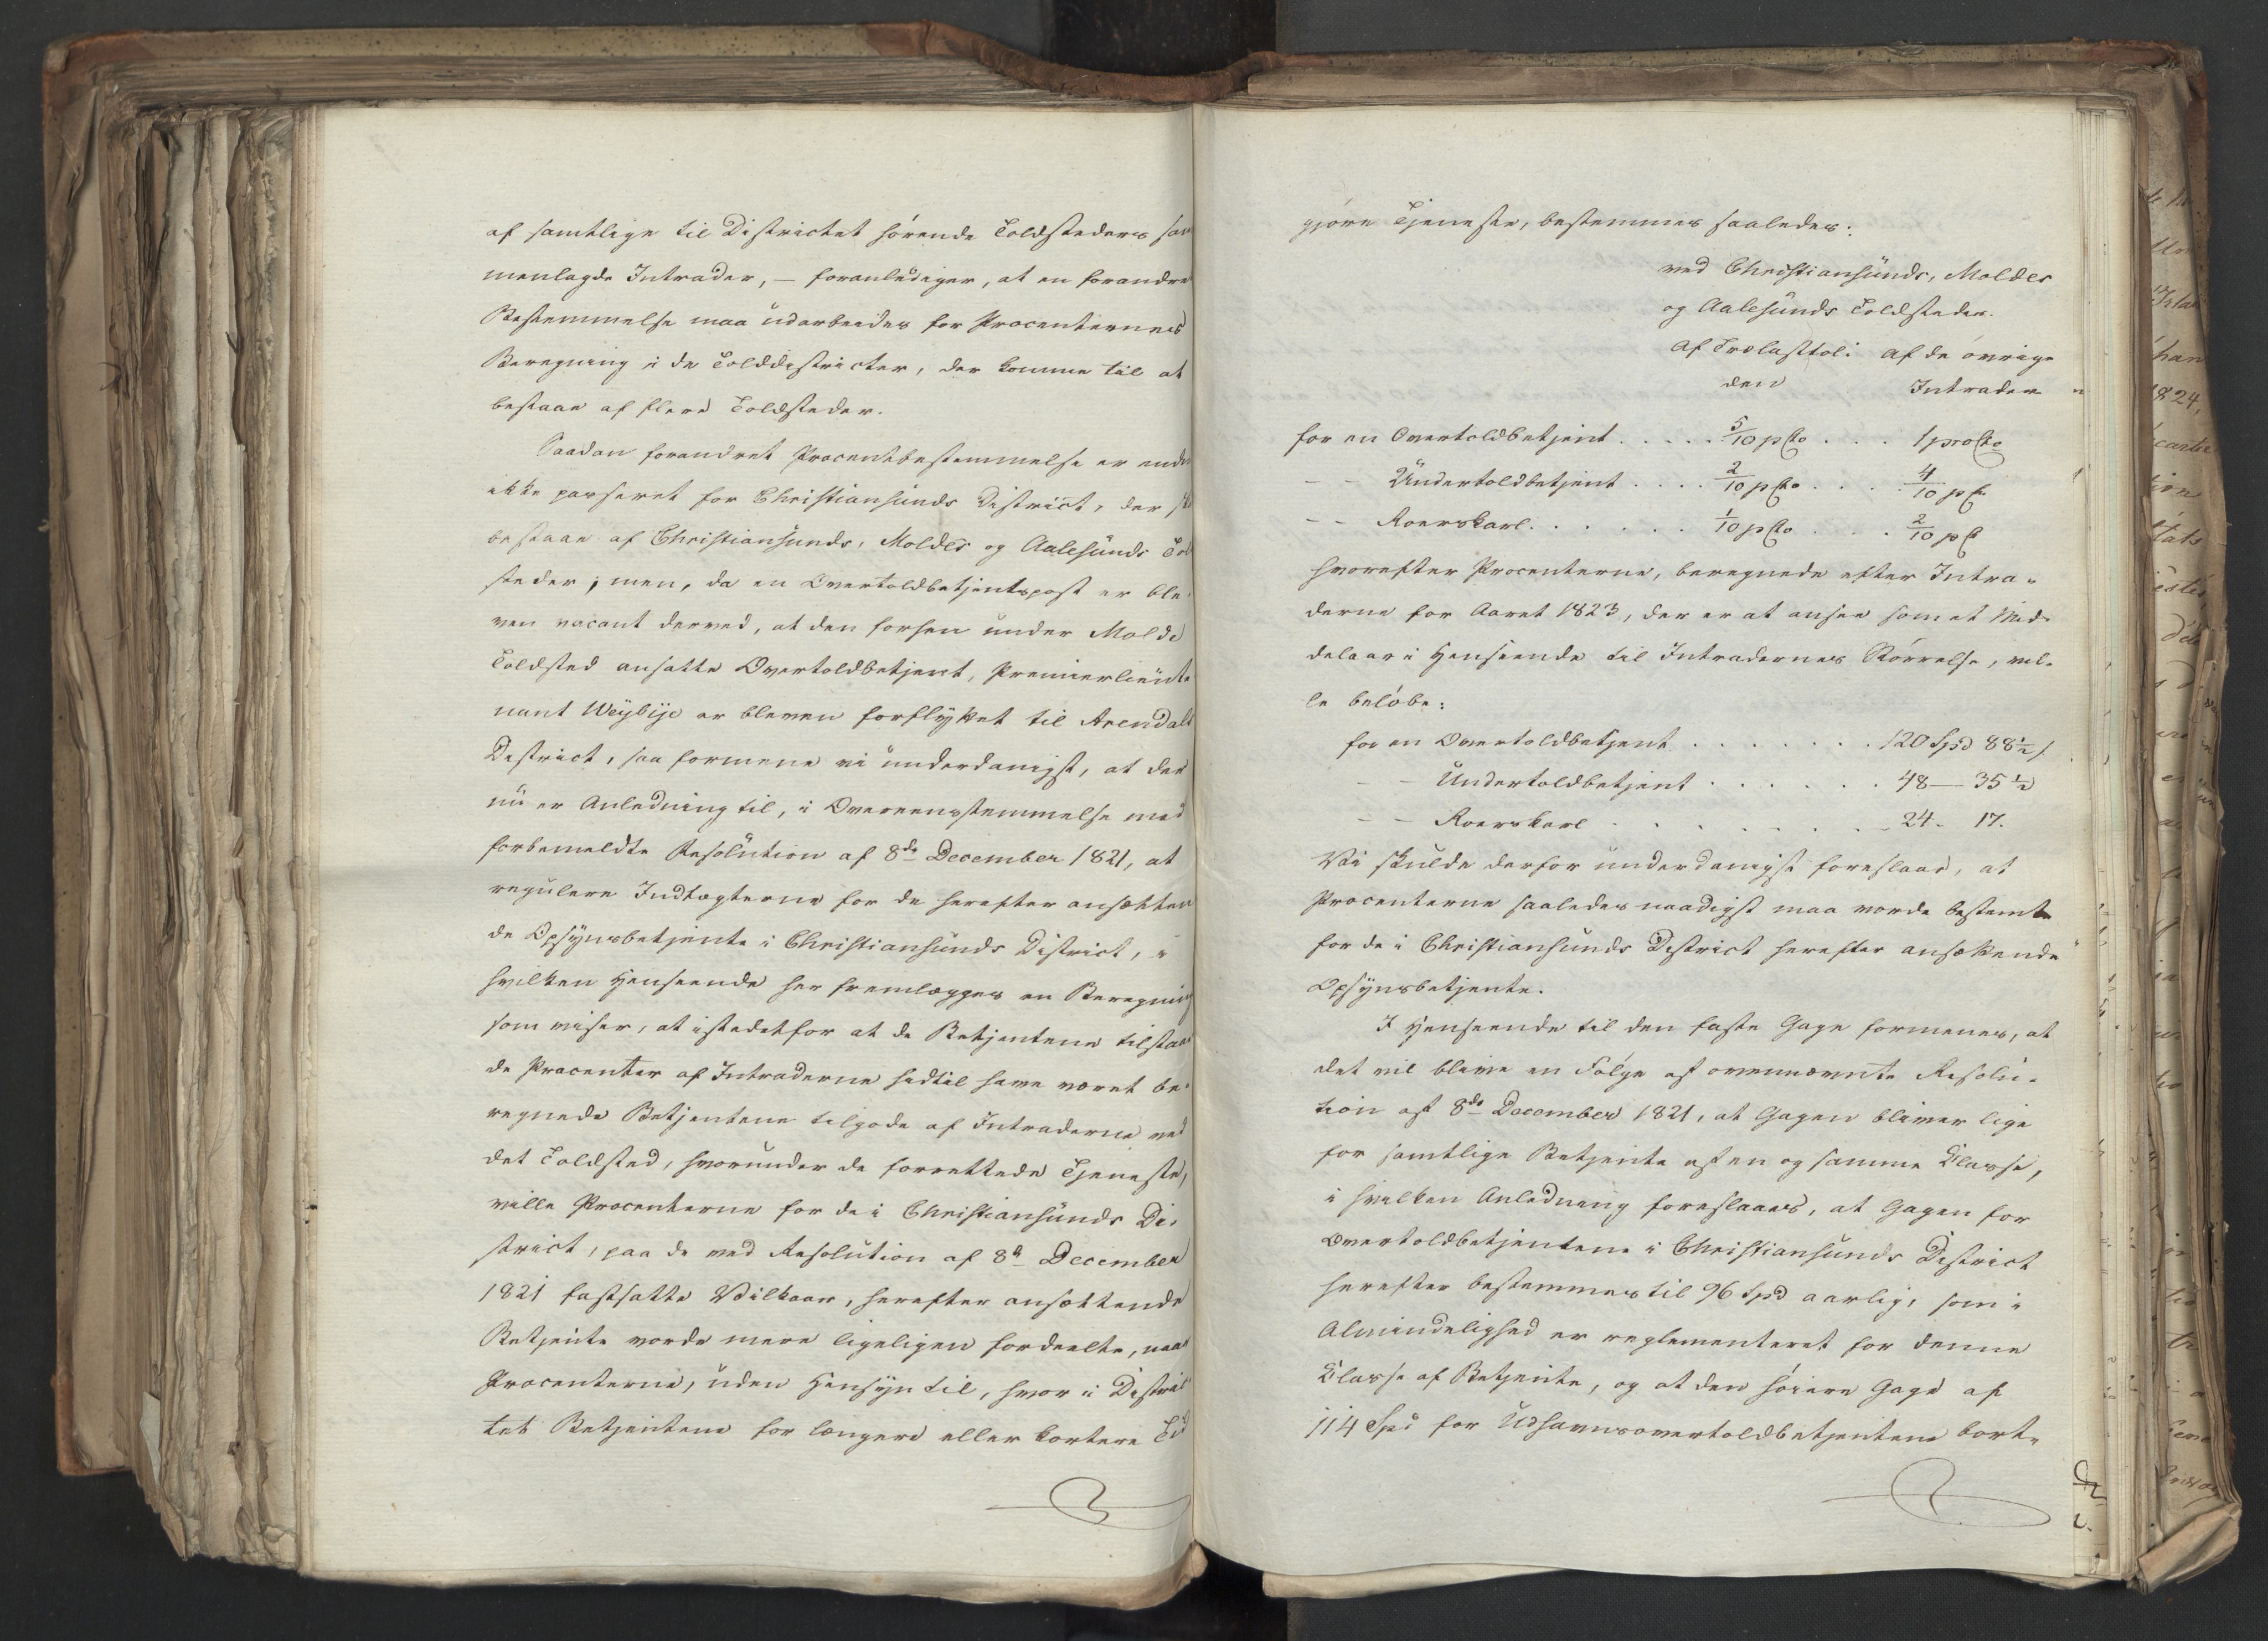 af samtlige til Districtet hørende Toldsteders sam
menlagde Intrader, — foranlediger, at en forandret
Bestemmelse maa udarbeides for Procenternes
Beregning i de Tolddistricter, der komme til at
bestaae af flere Toldsteder.
Saadan forandret Procentbestemmelse er endnu
ikke passeret for Christiansunds District, der skal
bestaae af Christiansunds, Moldes og Aalesunds Told
steder; men, da en Overtoldbetjentspost er ble-
ven vacant derved, at den forhen under Molde
Toldsted ansatte Overtoldbetjent, Premierlieute
nant Weybye er bleven forflyttet til Arendals
District, saa formene vi underdanigst, at der
nu er Anledning til, i Overeensstemmelse med
forbemeldte Resolution af 8de December 1821, at
regulere Indtægterne for de herefter ansætten
de Opsynsbetjente i Christiansunds District, i
hvilken Henseende her fremlægges en Beregning
som viser, at istedetfor at de Betjentene tilstaae
de Procenter af Intraderne hidtil have været be-
regnede Betjentene tilgode af Intraderne ved
det Toldsted, hvorunder de forrettede Tjeneste,
ville Procenterne for de i Christiansunds Di-
strict, paa de ved Resolution af 8de December
1821 fastsatte Vilkaar, herefter ansættende
Betjente vorde mere ligeligen fordeelte, naar
Procenterne, uden Hensyn til, hvor i Distric
tet Betjentene for længere eller kortere Tid
gjøre Tjeneste, bestemmes saaledes:
ved Christiansunds, Moldes
og Aalesunds Toldsteder.
Af Trælasttol- af de øvrige
den Intrader
for en Overtoldbetjent . . . . . 5/10 pCto . . . 1 proCto
— — Undertoldbetjent . . . . 2/10 pCto . . . . 4/10 pC
— — Roerskarl . . . . . . 1/10 pCto . . . . 2/10 pC
hvorefter Procenterne, beregnede efter Intra-
derne for Aaret 1823, der er at ansee som et Mid-
delaar i Henseende til Intradernes Størrelse, vil-
le beløbe:
for en Overtoldbetjent . . . . . . . 120 Spd 88½ s
— — Undertoldbetjent . . . . . . 48 — 35½
— — Roerskarl . . . . . . . 24 - 17.
Vi skulde derfor underdanigst foreslaae, at
Procenterne saaledes naadigst maa vorde bestemte
for de i Christiansunds District herefter ansættende
Opsynsbetjente.
I Henseende til den faste Gage formenes, at
det vil blive en Følge af ovennævnte Resolu-
tion af 8de December 1821, at Gagen bliver lige
for samtlige Betjente af en og samme Classe,
i hvilken Anledning foreslaaes, at Gagen for
Overtoldbetjentene i Christiansunds District
herefter bestemmes til 96 Spd aarlig, som i
Almindelighed er reglementeret for denne
Classe af Betjente, og at den høiere Gage af
114 Spd for Udhavnsovertoldbetjentene bort-